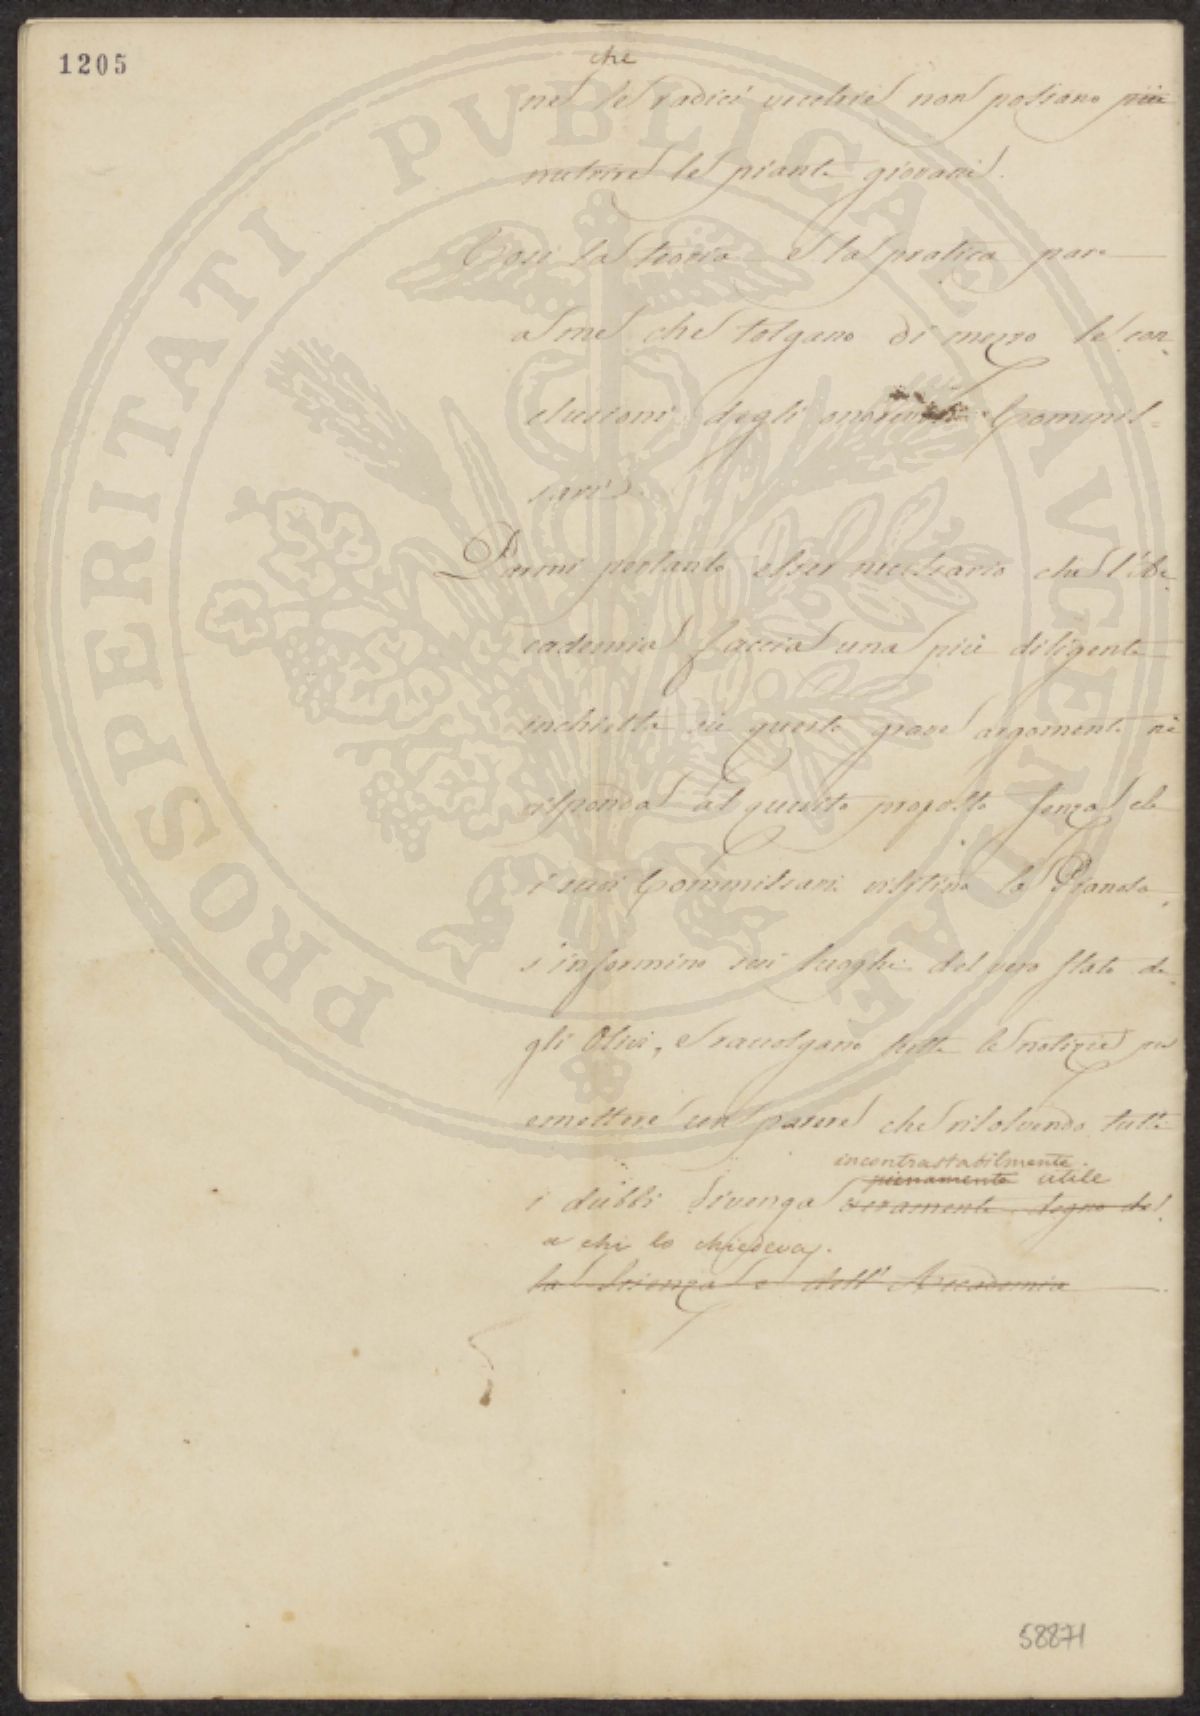 1205
che
ne le radici vecchie non possano più
nutrire le piante giovani.
Così la teoria e la pratica pare
a me che tolgano di mezzo le con
clusioni degli onorevoli Commis=
sari.
Parmi pertanto esser necessario che l'Ac
cademia faccia una più diligente
inchiesta su questo grave argomento nè
risponda al quesito proposto senza che
i suoi Commissari visitino la Pianosa
s'informino sui luoghi del vero stato de
gli Olivi, e raccolgano tutte le notizie per
emettere un parere che risolvendo tutti
incontrastabilmente
pienamente utile
i dubbi divenga veramente degno del
a chi lo chiedeva.
la Scienza e dell'Accademia
58871
PROSPERITATI PVBLICAE AVGENDAE